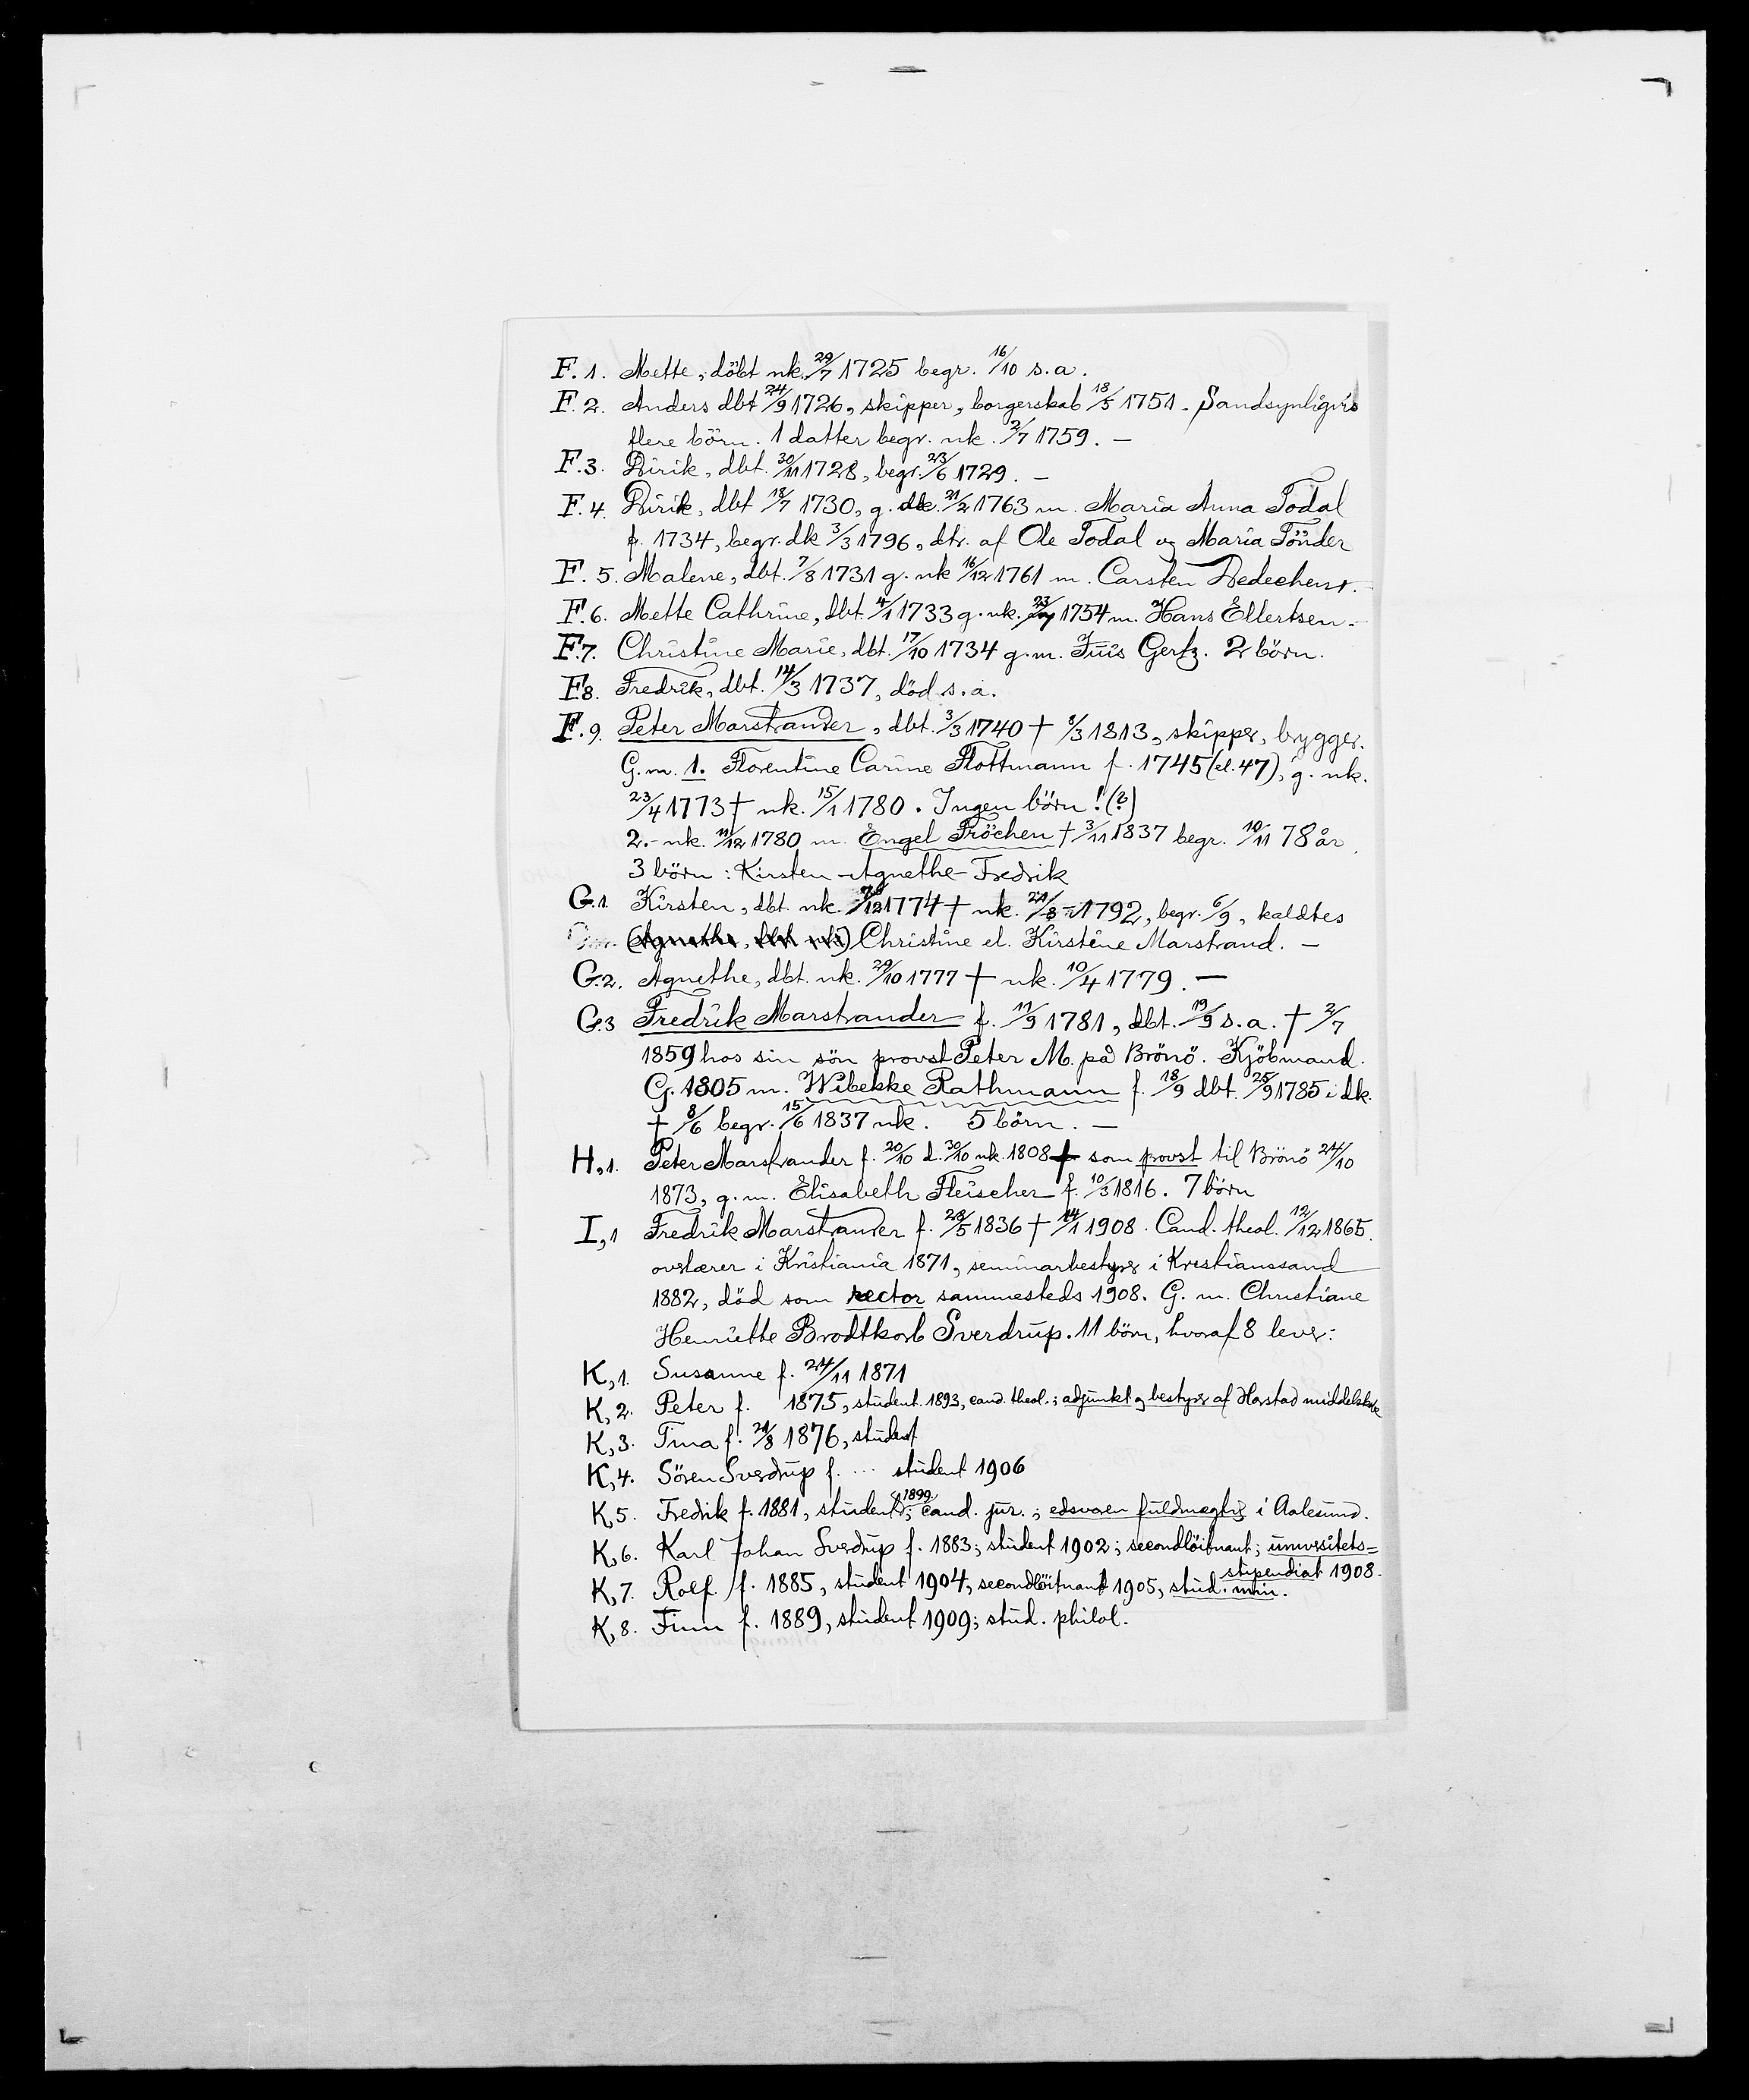 F. 1. Mette, döbt nk. 29/7 1725 begr. 16/10 s.a.
F. 2. Anders dbt 24/9 1726, skipper, borgerskab 18/5 1751. Sandsynligvis
flere börn. 1 datter begr. nk. 2/7 1759. —
F. 3. Dirik, dbt. 30/11 1728, begr. 23/6 1729. —
F. 4. Dirik, dbt 18/7 1730, g. dk. 21/2 1763 m. Maria Anna Todal
f. 1734, begr. dk 3/3 1796, dtr. af Ole Todal og Maria Tönder
F. 5. Malene, dbt. 7/8 1731 g. nk 16/12 1761 m. Carsten Dedechen.
F. 6. Mette Cathrine, dbt. 4/1 1733 g. nk. 1754 m. Hans Ellertsen.
F. 7. Christine Marie, dbt. 17/10 1734 g. m. Gertz. 2 börn.
F. 8. Fredrik, dbt. 14/3 1737, död s. a.
F. 9. Peter Marstrander, dbt. 3/3 1740 † 8/3 1813, skipper, brygger.
G. m. 1. Florentine Carine Flottmann f. 1745 (el. 47), g. nk.
23/4 1773 † nk. 15/1 1780. Ingen börn! (?)
2.- nk. 11/12 1780 m. Engel Fröchen † 3/11 1837 begr. 10/11 78 år.
3 börn: Kirsten - Agnethe - Fredrik
G. 1. Kirsten, dbt. nk. 1774 † nk. 1792, begr. 6/9, kaldtes
(Agnethe, dbt nk) Christine el. Kirstine Marstrand. —
G. 2. Agnethe, dbt. nk. 29/10 1777 † nk. 10/4 1779. —
G. 3 Fredrik Marstrander f. 11/9 1781, dbt. 19/9 s. a. † 2/7
1859 hos sin sön provst Peter M. på Brönö. Kjöbmand.
G. 1805 m. Wibekke Rathmann f. 18/9 dbt. 25/9 1785 i dk.
† 8/6 begr. 15/6 1837 nk. 5 börn. —
H, 1. Peter Marstrander f. 20/10 d. 30/10 nk. 1808 † som provst til Brönö 24/10
1873, g. m. Elisabeth Fleischer f. 10/3 1816. 7 börn
I, 1 Fredrik Marstrander f. 28/5 1836 † 14/1 1908. Cand. theol. 12/12 1865.
overlærer i Kristiania 1871, seminarbestyrer i Kristianssand
1882, död som rector sammesteds 1908. G. m. Christiane
Henriette Brodtkorb Sverdrup. 11 börn, hvoraf 8 lever:
K, 1. Susanne f. 24/11 1871
K, 2. Peter f. 1875, student 1893, cand. theol.; adjunkt og bestyrer af Harstad middelskole
K, 3. Tina f. 21/8 1876, student
K, 4. Sören Sverdrup f. ... student 1906
K, 5. Fredrik f. 1881, student 1899; cand. jur.; edsvoren fuldmægtig i Aalesund.
K, 6. Karl Johan Sverdrup f. 1883; student 1902; secondlöitnant; universitets=
stipendiat 1908.
K, 7. Rolf f. 1885, student 1904, secondlöitnant 1905, stud. min.
K, 8. Finn f. 1889, student 1909; stud. philol.